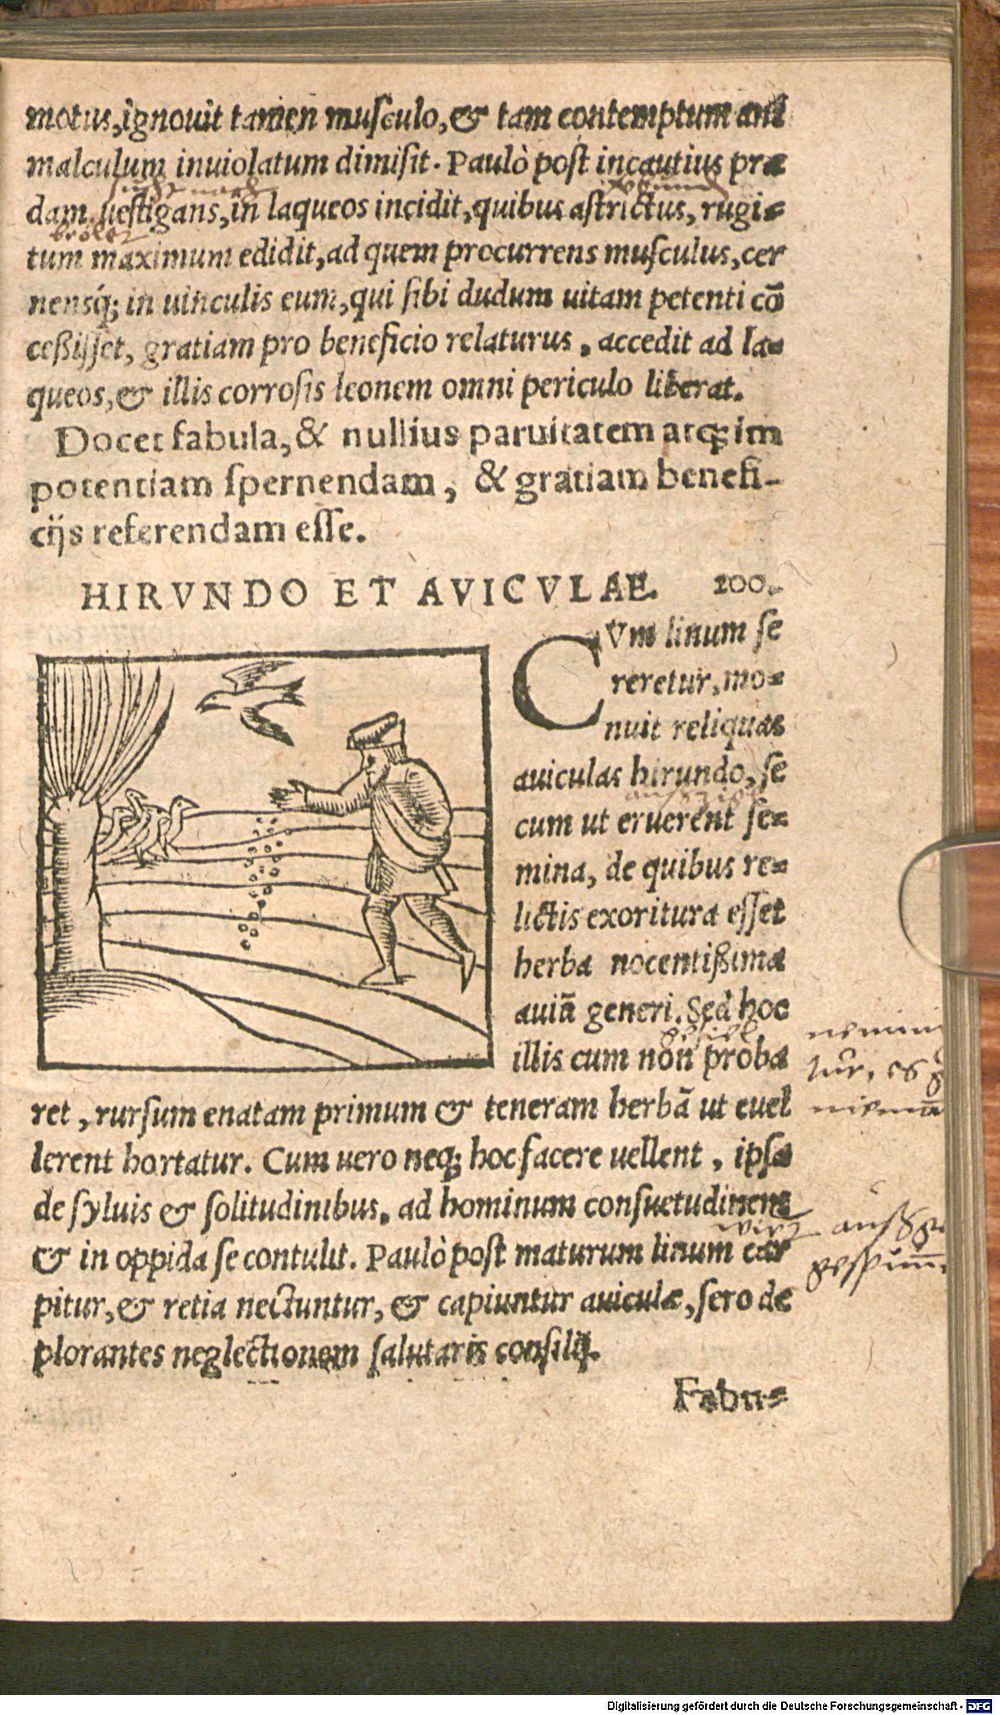 motus, ignouit tamen musculo, & tam contemptum ani
malculum inuiolatum dimisit. Paulò post incautius præ
dam uestigans, in laqueos incidit, quibus astrictus, rugi=
tum maximum edidit, ad quem procurrens musculus, cer
nensq́; in uinculis eum, qui sibi dudum uitam petenti cō
ceßisset, gratiam pro beneficio relaturus, accedit ad la=
queos, & illis corrosis leonem omni periculo liberat.
Docet fabula, & nullius paruitatem atq; im
potentiam spernendam, & gratiam benefi-
cijs referendam esse.
HIRVNDO ET AVICVLAE. 100.
CVm linum se
reretur, mo=
nuit reliquas
auiculas hirundo, se
cum ut eruerent se=
mina, de quibus re=
lictis exoritura esset
herba nocentißima
auiū generi. Sed hoc
illis cum non proba
ret, rursum enatam primum & teneram herbā ut euel
lerent hortatur. Cum uero neq; hoc facere uellent, ipsa
de syluis & solitudinibus, ad hominum consuetudinem
& in oppida se contulit. Paulò post maturum linum car
pitur, & retia nectuntur, & capiuntur auiculæ, sero de
plorantes neglectionem salutaris consilij.
Fabu=
Digitalisierung gefördert durch die Deutsche Forschungsgemeinschaft - DFG